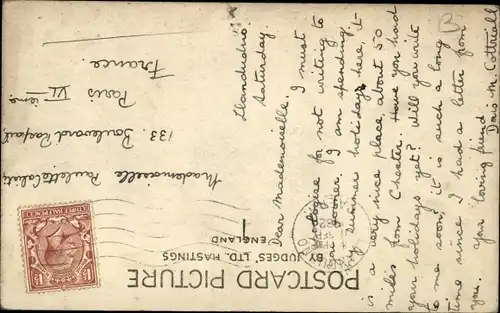 POSTCARD PICTURE
BY JUDGES' LTD, HASTINGS
ENGLAND
Llandudno
Saturday.
Dear Mademoiselle. I must
apologise for not writing to
you sooner. I am spending
my summer holidays here. it
is a very nice place about 50
miles from Chester. Have you had
your holidays yet? Will you write
to me soon, it is such a long
time since I had a letter from
you. your loving friend
Doris M. Cottrell
Mademoiselle
Paulette
133. Boulevard Raspail,
Paris
VI ieme
France.
THREE HALF PENCE